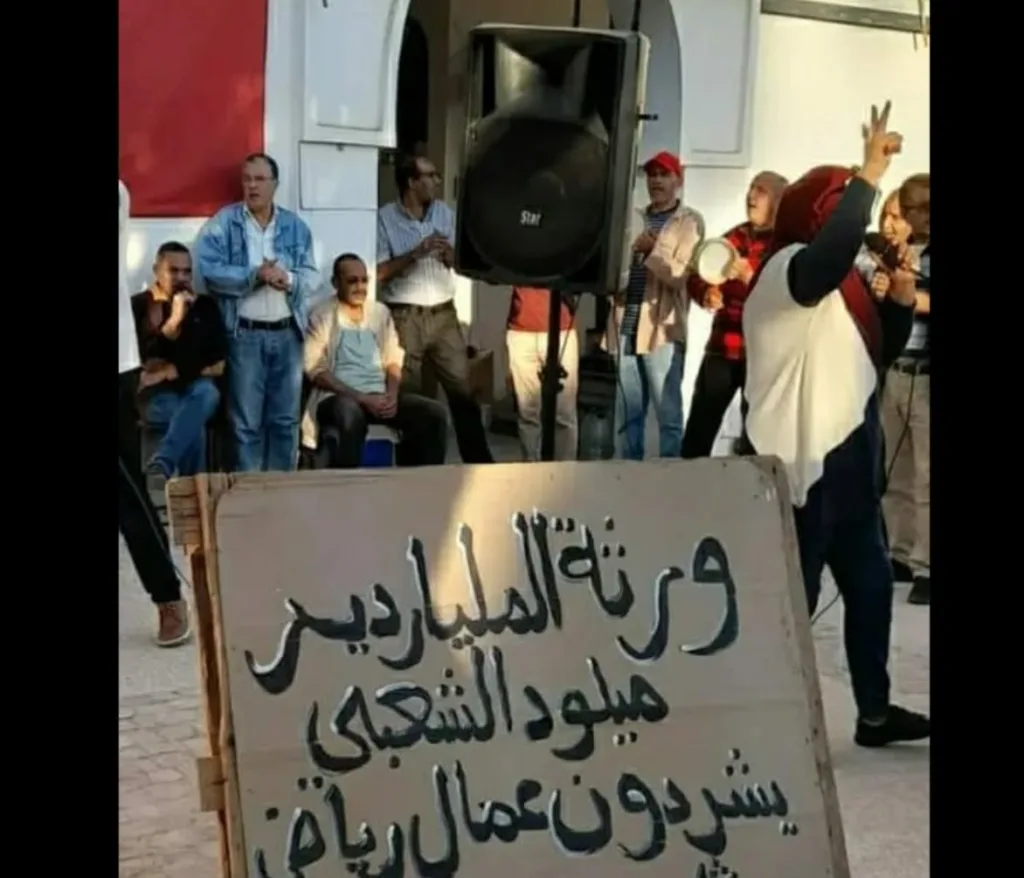 Star
ورثة الملياردير
ميلود الشعبي
يشردون عمال رياض